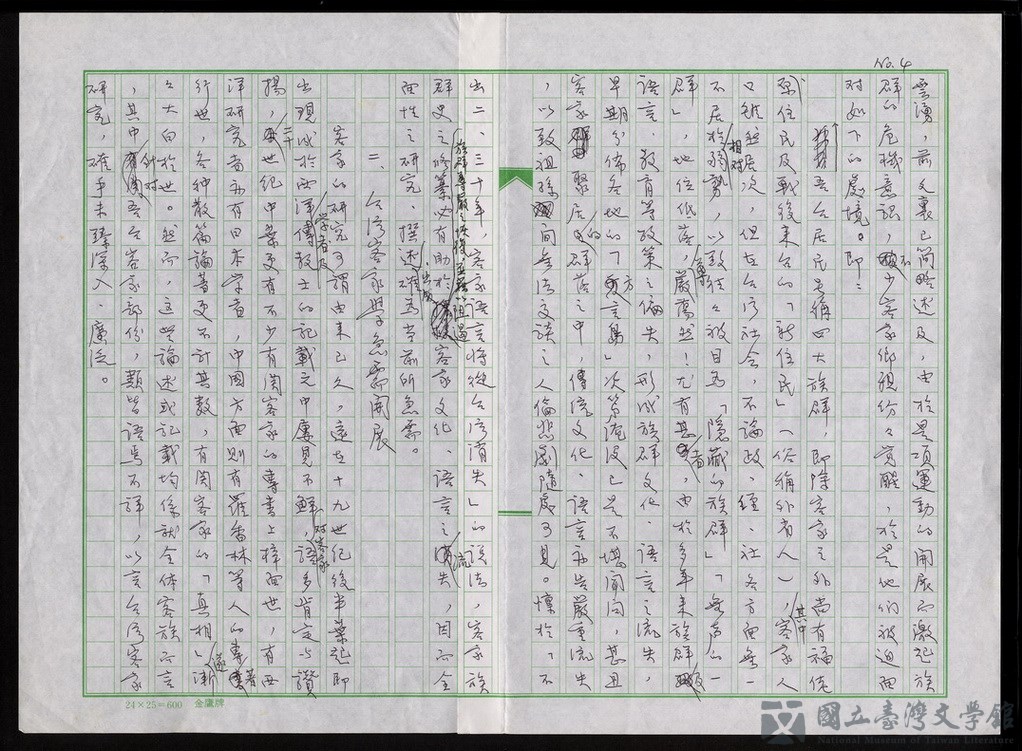 No. 4
雲湧，前文裏已簡略述及，由於是項運動的開展而激起族
群的危機意識，不少客家鄉親紛紛覺醒，於是他們被迫面
对如下的處境。即：
吾台居民号稱四大族群，即除客家之外尚有福佬
原住民及戰後來台的「新住民」（俗稱外省人），其中客家人
口雖然居次，但在台湾社会，不論政、經、社各方面無一
不居於相对弱勢，以致往々被目為「隱藏的族群」「無声的一
群」，地位低落，嚴重蕩然！尤有甚者，由於多年來族群
語言、教育等政策之偏失，形成族群文化、語言之流失，
早期分佈各地的「方言島」次第淹没已是不堪聞問，甚且
客家聚居的群落之中，傳統文化、語言亦告嚴重流失
，以致祖孫間無法交談之人倫悲劇隨處可見。懍於「不
出二、三十年，客家語言將從台湾消失」的說法，客家族
群史之修纂必有助於族群尊嚴之恢復客家文化、語言之流失，因而全
面性之研究、撰述、出版確為当前所急需。
二、台湾客家學急需開展
客家的研究可謂由來已久，遠在十九世紀後半葉起即
出現成於西洋學者及傳教士的記載中屢見不鮮，对客家語多肯定与讚
揚，二十世紀中葉更有不少有関客家的專書上梓面世，有西
洋研究者亦有日本学者，中國方面則有羅香林等人的專著
行世，各种散篇論著更不計其數，有関客家的「真相」遂漸
々大白於世。然而，這些論述或記載均係就全体客族而言
，其中針对吾台客家部份，類皆語焉不詳，以言台湾客家
研究，確乎未臻深入、廣泛。
24×25=600 金鷹牌
國立臺灣文學館
National Museum of Taiwan Literature